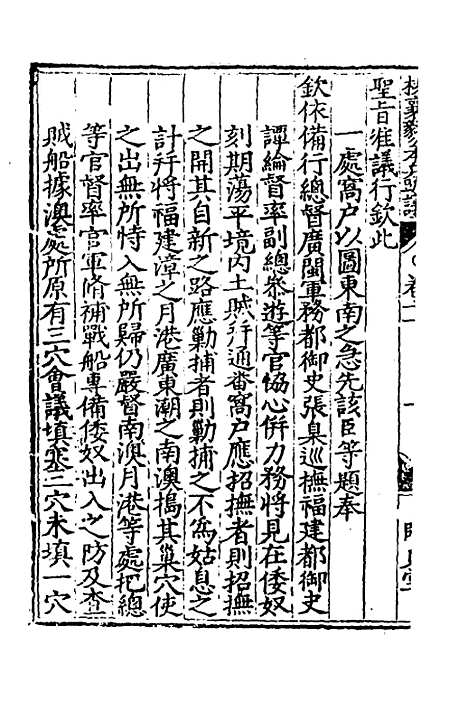 聖旨准議行欽此
一處窩户以圖東南之急先該臣等題奉
欽依備行總督廣閩軍務都御史張臬巡撫福建都御史
譚綸督率副總參遊等官協心併力務將見在倭奴
刻期蕩平境内土賊行通番窩户應招撫者則招撫
之開其自新之路應勦捕者則勦捕之不為姑息之
計行將福建漳之月港廣東潮之南澳搗其巢穴使
之出無所恃入無所歸仍嚴督南澳月港等處把總
等官督率官軍脩補戰船專備倭奴出入之防及查
賊船據澳處所原有三穴會議填塞二穴未填一穴